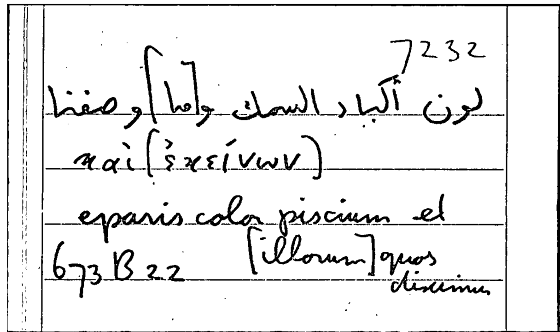 7232
لون أكباد السمك و[ما] وصفنا
καὶ (ἐκείνων)
eparis color piscium et
[illorum] quos
673B22 diximus